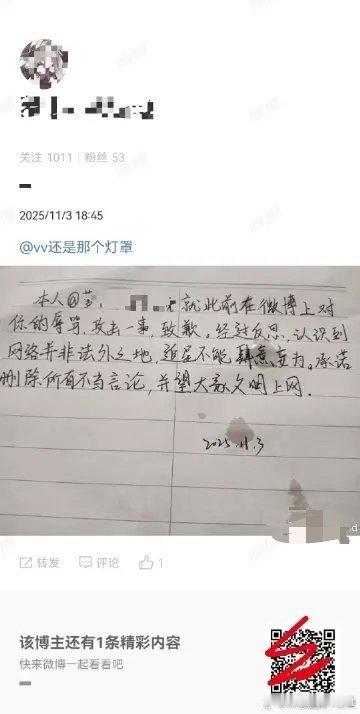 关注 1011 | 粉丝 53
2025/11/3 18:45
@vv还是那个灯罩
本人@ 就此前在微博上对
你的辱骂，攻击一事，致歉。经过反思，认识到
网络并非法外之地，追星不能肆意妄为。承诺
删除所有不当言论，并望大家文明上网。
2025.11.3
转发 评论 1
该博主还有1条精彩内容
快来微博一起看看吧